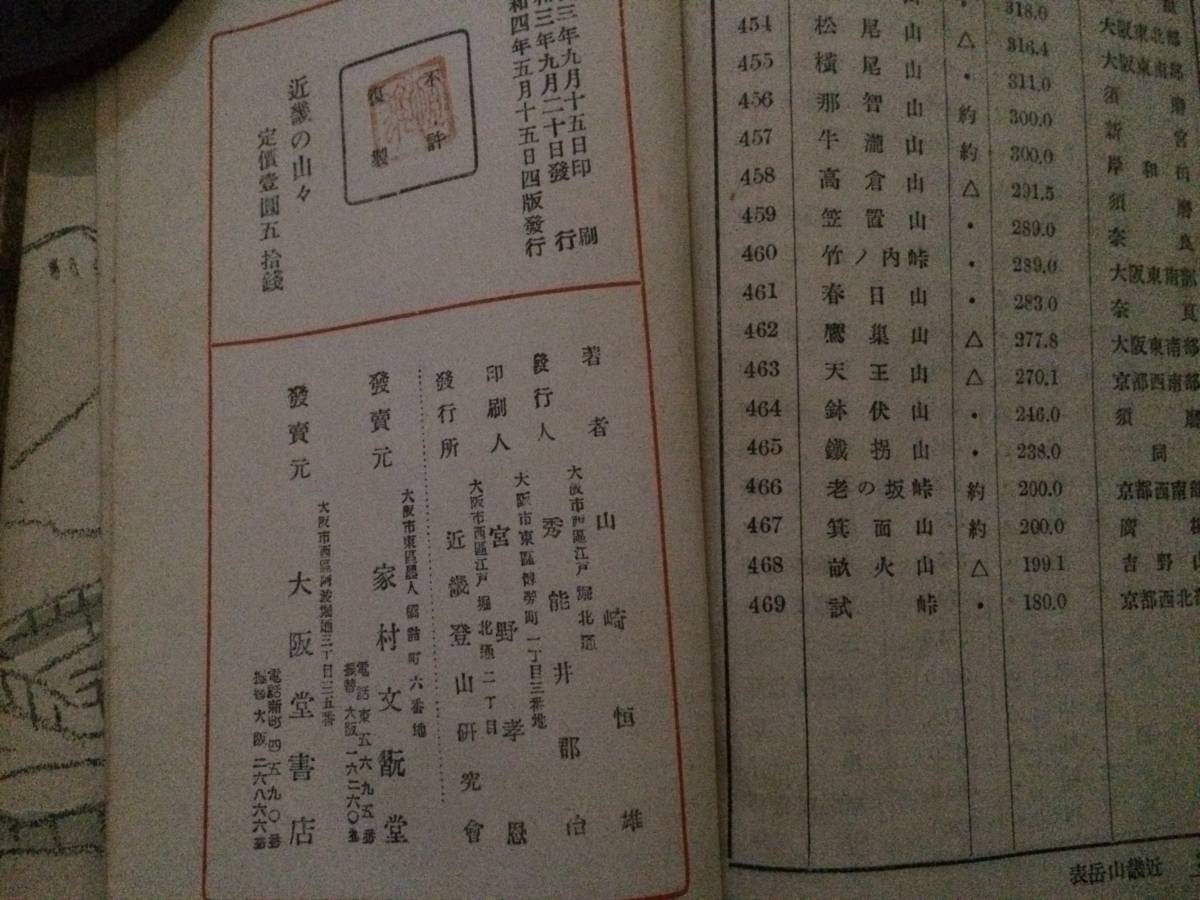 三年九月十五日印刷
和三年九月二十日發行
和四年五月十五日四版發行
不許
復製
近畿の山々
定價壹圓五拾錢
著者 山崎恒雄
大阪市西區江戸堀北通
發行人 秀能井郡治
大阪市東區博勞町一丁目三番地
印刷人 宮野孝
大阪市西區江戸堀北通二丁目
發行所 近畿登山研究會
大阪市東區農人橋詰町六番地
發賣元 家村文翫堂
電話東五六九五番
振替大阪一六二六〇番
大阪市西區阿波堀通三丁目三五番
發賣元 大阪堂書店
電話新町四五九〇番
振替大阪二六八六六番
318.0
454 松尾山 △ 316.4 大阪東北部
455 橫尾山 • 311.0 大阪東南部
456 那智山 約 300.0 新宮
457 牛瀧山 約 300.0 岸和田
458 高倉山 △ 291.5 須磨
459 笠置山 • 289.0 奈良
460 竹ノ内峠 • 289.0 大阪東南部
461 春日山 • 283.0 奈良
462 鷹巢山 △ 277.8 大阪東南部
463 天王山 △ 270.1 京都西南部
464 鉢伏山 • 246.0 須磨
465 鐵拐山 • 238.0 同
466 老の坂峠 約 200.0 京都西南部
467 箕面山 約 200.0 廣根
468 畝火山 △ 199.1 吉野山
469 試峠 • 180.0 京都西北部
近畿山岳表